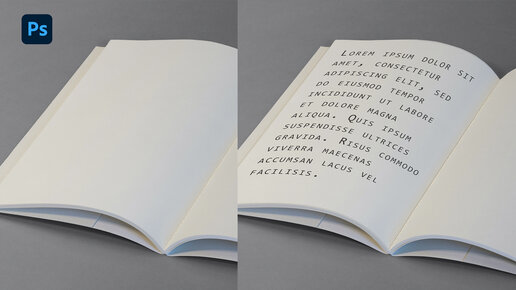 Ps
Lorem ipsum dolor sit
amet, consectetur
adipiscing elit, sed
do eiusmod tempor
incididunt ut labore
et dolore magna
aliqua. Quis ipsum
suspendisse ultrices
gravida. Risus commodo
viverra maecenas
accumsan lacus vel
facilisis.